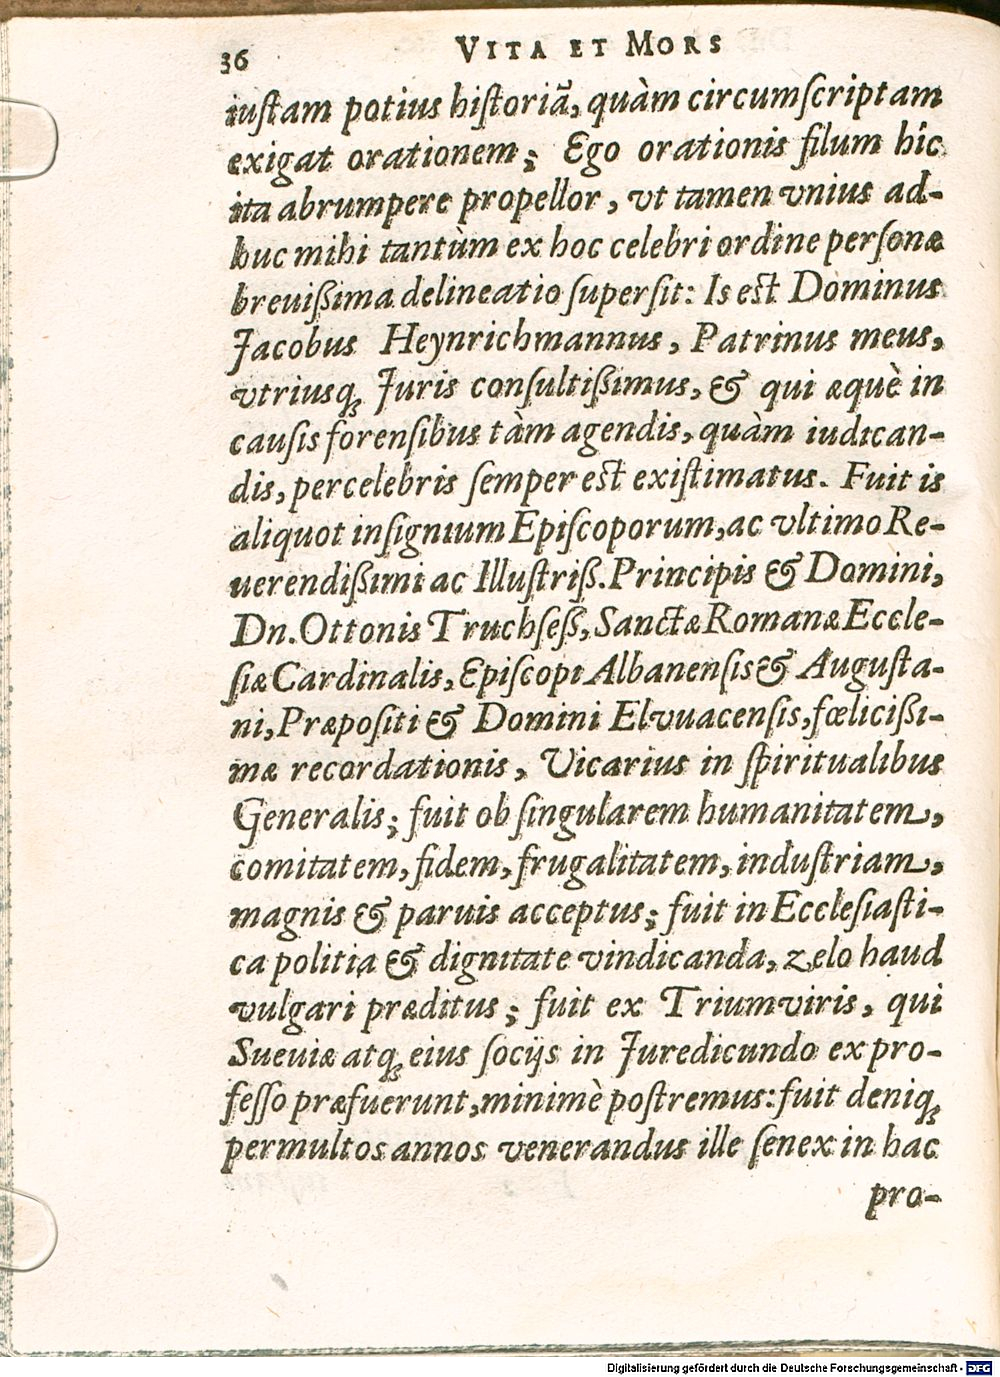 36 VITA ET MORS
iuſtam potius hiſtoriã, quàm circumſcriptam
exigat orationem; Ego orationis filum hîc
ita abrumpere propellor, vt tamen vnius ad-
huc mihi tantùm ex hoc celebri ordine perſonæ
breuißima delineatio ſuperſit: Is eſt Dominus
Jacobus Heynrichmannus, Patrinus meus,
vtriusq; Juris conſultißimus, & qui æquè in
cauſis forenſibus tàm agendis, quàm iudican-
dis, percelebris ſemper eſt exiſtimatus. Fuit is
aliquot inſignium Epiſcoporum, ac vltimo Re-
uerendißimi ac Illuſtriß. Principis & Domini,
Dn. Ottonis Truchſeß, Sanctæ Romanæ Eccle-
ſiæ Cardinalis, Epiſcopi Albanenſis & Auguſta-
ni, Præpoſiti & Domini Elvuacenſis, fœlicißi-
mæ recordationis, Vicarius in ſpiritualibus
Generalis; fuit ob ſingularem humanitatem,
comitatem, fidem, frugalitatem, induſtriam,
magnis & paruis acceptus; fuit in Eccleſiaſti-
ca politia & dignitate vindicanda, zelo haud
vulgari præditus; fuit ex Triumviris, qui
Sueuiæ atq; eius ſocijs in Juredicundo ex pro-
feſſo præfuerunt, minimè poſtremus: fuit deniq;
permultos annos venerandus ille ſenex in hac
pro-
Digitalisierung gefördert durch die Deutsche Forschungsgemeinschaft - DFG